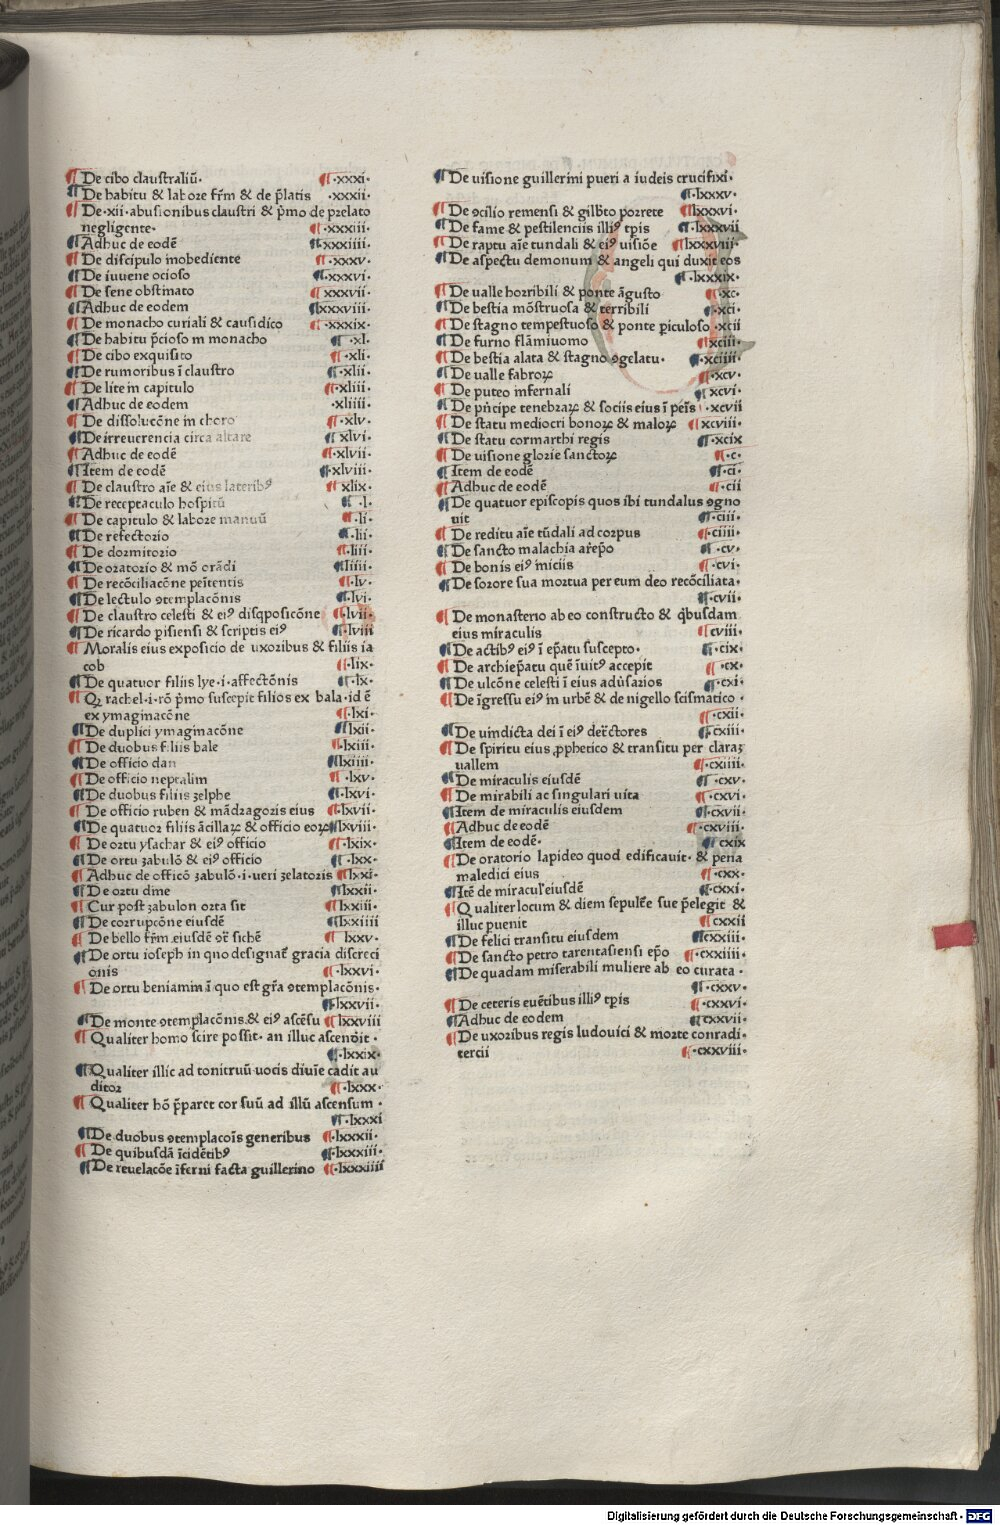 De cibo claustraliū· ·xxxi·
De habitu & labore fr̄m & de p̄latis ·xxxii·
De·xii·abusionibus claustri & p̄mo de prelato
negligente· ·xxxiii·
Adhuc de eodē ·xxxiiii·
De discipulo inobediente ·xxxv·
De iuuene ocioso ·xxxvi·
De sene obstinato xxxvii·
Adhuc de eodem xxxviii·
De monacho curiali & causidico ·xxxix·
De habitu p̄cioso in monacho ·xl·
De cibo exquisito ·xli·
De rumoribus ī claustro ·xlii·
De lite in capitulo ·xliii·
Adhuc de eodem ·xliiii·
De dissolucōne in choro ·xlv·
De irreuerencia circa altare xlvi·
Adhuc de eodē ·xlvii·
Item de eodē ·xlviii·
De claustro aīe & eius laterib⁹ xlix·
De receptaculo hospitū ·l·
De capitulo & labore manuū ·li·
De refectorio ·lii·
De dormitorio ·liii·
De oratorio & mō orādi liiii·
De recōciliacōne peītentis ·lv·
De lectulo ↄtemplacōnis ·lvi·
De claustro celesti & ei⁹ disqposicōne ·lvii·
De ricardo p̄isiensi & scriptis ei⁹ ·lviii
Moralis eius exposicio de uxoribus & filiis ia
cob ·lix·
De quatuor filiis lye·i·affectōnis ·lx·
Q rachel·i·rō p̄mo suscepit filios ex bala·id ē
ex ymaginacōne ·lxi·
De duplici ymaginacōne lxii·
De duobus filiis bale ·lxiii·
De officio dan lxiiii·
De officio neptalim ·lxv·
De duobus filiis zelphe ·lxvi·
De officio ruben & mādragoris eius ·lxvii·
De quatuor filiis ācillaꝝ & officio eoꝝ lxviii·
De ortu ysachar & ei⁹ officio ·lxix·
De ortu zabulō & ei⁹ officio ·lxx·
Adhuc de officō zabulō·i·ueri zelatoris lxxi·
De ortu dine lxxii·
Cur post zabulon orta sit lxxiii·
De corrupcōne eiusdē lxxiiii
De bello fr̄m eiusdē ↄt̄ sichē lxxv·
De ortu ioseph in quo designat̄ gracia discreci
onis ·lxxvi·
De ortu beniamin ī quo est gr̄a ↄtemplacōnis·
lxxvii·
De monte ↄtemplacōnis & ei⁹ ascēsu lxxviii
Qualiter homo scire possit· an illuc ascendit ·
·lxxix·
Qualiter illic ad tonitruū uocis diuīe cadit au
ditor ·lxxx·
Qualiter hō p̄paret cor suū ad illū ascensum ·
·lxxxi
De duobus ↄtemplacoīs generibus lxxxii·
De quibusdā īcidētib⁹ lxxxiii·
De reuelacōe īferni facta guillerino ·lxxxiiii
De uisione guillermi pueri a iudeis crucifixi·
·lxxxv·
De ↄcilio remensi & gilb̄to porrete lxxxvi·
De fame & pestilenciis illi⁹ tp̄is ·lxxxvii
De raptu aīe tundali & ei⁹ uisiōe lxxxviii·
De aspectu demonum & angeli qui duxit eos
·lxxxix·
De ualle horribili & ponte āgusto ·xc·
De bestia mōstruosa & terribili ·xci·
De stagno tempestuoso & ponte p̄iculoso ·xcii
De furno flāmiuomo xciii·
De bestia alata & stagno ↄgelatu· ·xciiii·
De ualle fabroꝝ ·xcv·
De puteo infernali xcvi·
De p̄ncipe tenebraꝝ & sociis eius ī peīs ·xcvii
De statu mediocri bonoꝝ & maloꝝ xcviii·
De statu cormarthi regis ·xcix
De uisione glorie sanctoꝝ ·c·
Item de eodē ·ci·
Adhuc de eodē ·cii
De quatuor episcopis quos ibi tundalus ↄgno
uit ·ciii·
De reditu aīe tūdali ad corpus ·ciiii·
De sancto malachia ar̄epō ·cv·
De bonis ei⁹ iniciis ·cvi·
De sorore sua mortua per eum deo recōciliata·
·cvii·
De monasterio ab eo constructo & q̄busdam
eius miraculis cviii·
De actib⁹ ei⁹ ī ep̄atu suscepto· ·cix·
De archiep̄atu quē īuit⁹ accepit ·cx·
De ulcōne celesti ī eius adūsarios ·cxi·
De īgressu ei⁹ in urbē & de nigello scismatico ·
·cxii·
De uindicta dei ī ei⁹ det̄ctores ·cxiii·
De spiritu eius ꝓphetico & transitu per claraȝ
uallem ·cxiiii·
De miraculis eiusdē ·cxv·
De mirabili ac singulari uita ·cxvi·
Item de miraculis eiusdem ·cxvii·
Adhuc de eodē ·cxviii·
Item de eodē· cxix
De oratorio lapideo quod edificauit· & pena
maledici eius ·cxx·
Itē de miracul' eiusdē ·cxxi·
Qualiter locum & diem sepult̄e sue p̄elegit &
illuc puenit cxxii
De felici transitu eiusdem cxxiii·
De sancto petro tarentasiensi ep̄o ·cxxiiii·
De quadam miserabili muliere ab eo curata ·
·cxxv·
De ceteris euētibus illi⁹ tp̄is ·cxxvi·
Adhuc de eodem cxxvii·
De uxoribus regis ludouici & morte conradi·
tercii ·cxxviii·
Digitalisierung gefördert durch die Deutsche Forschungsgemeinschaft - DFG